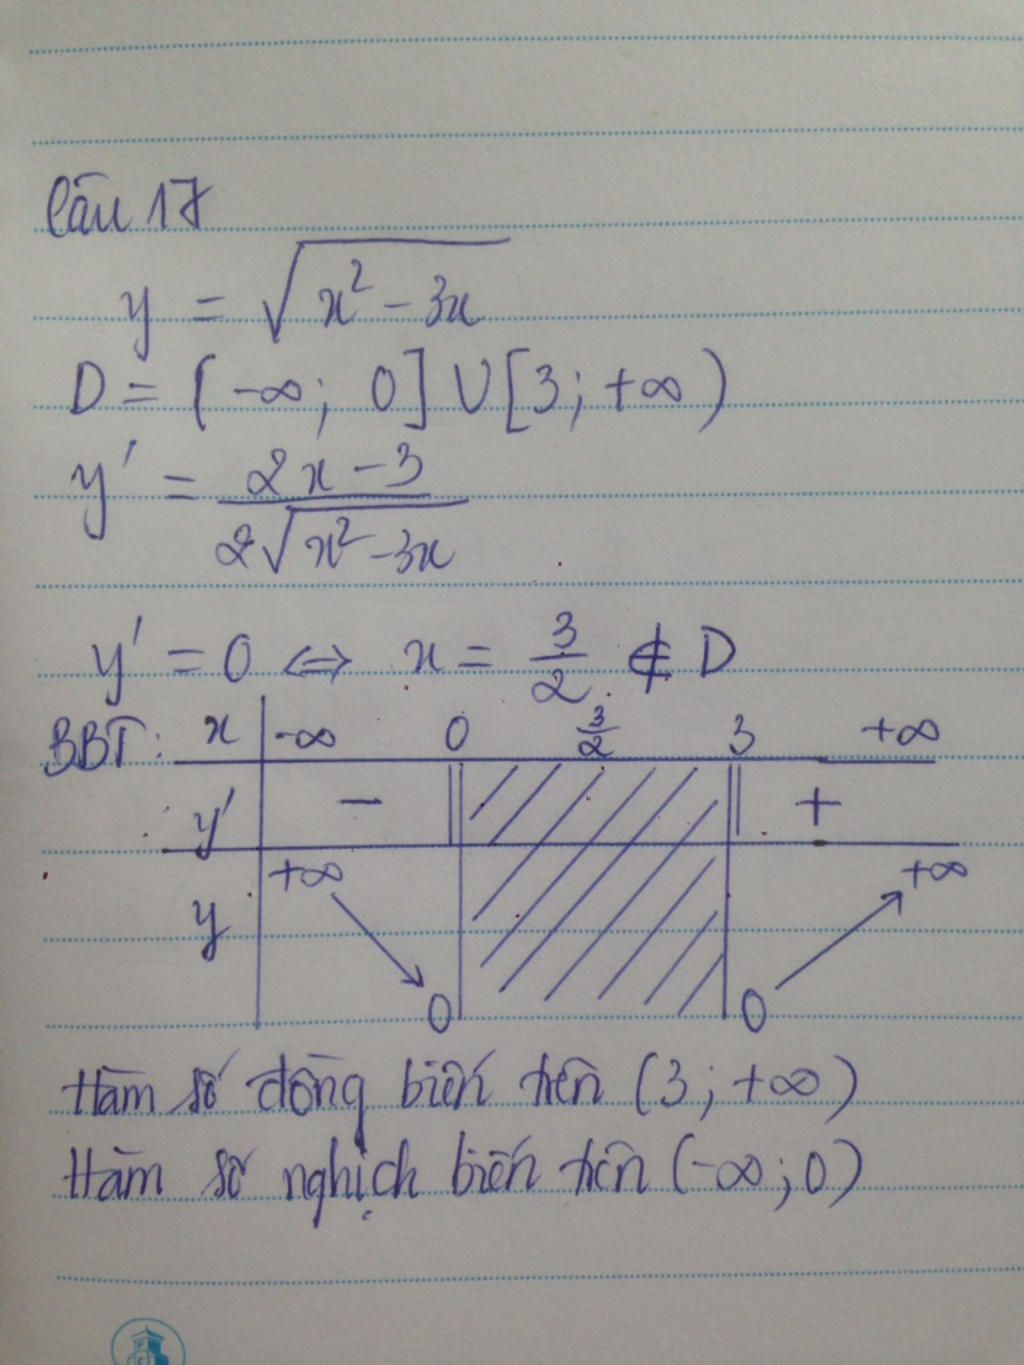 Câu 17
y = √(x² - 3x)
D = (-∞; 0] ∪ [3; +∞)
y' = (2x - 3) / (2√(x² - 3x))
y' = 0 ⇔ x = 3/2 ∉ D
BBT: x | -∞ 0 3/2 3 +∞
y' | - || || +
y | +∞ ↘ 0 0 ↗ +∞
Hàm số đồng biến trên (3; +∞)
Hàm số nghịch biến trên (-∞; 0)